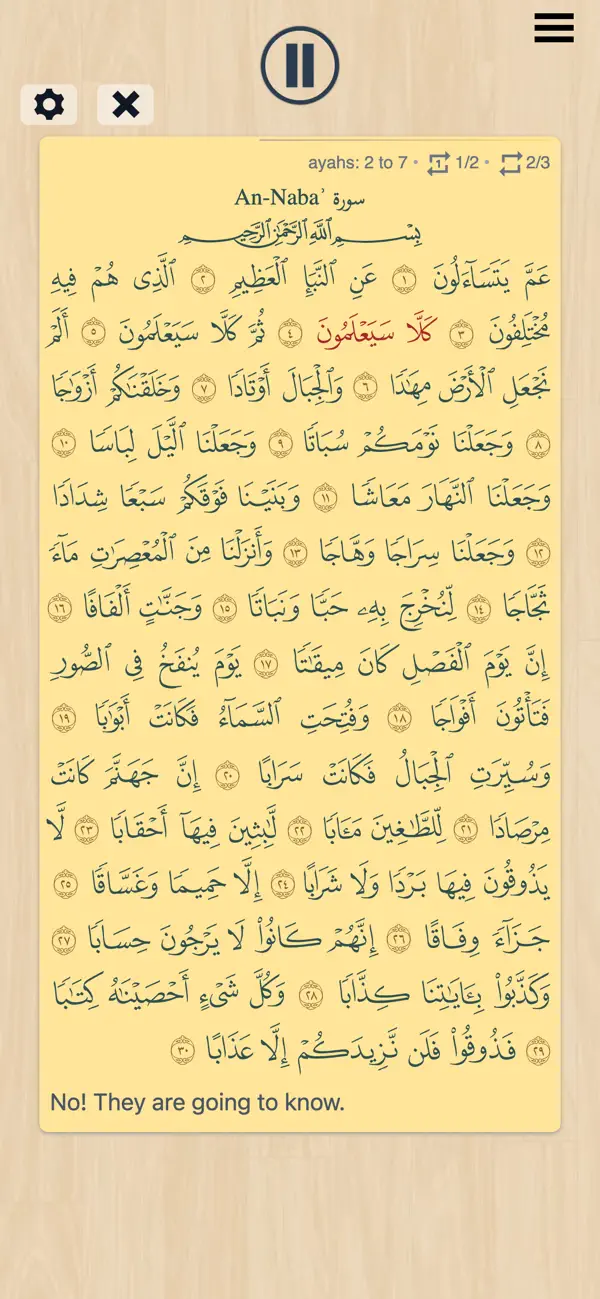 ayahs: 2 to 7 • 1 1/2 • 2/3
An-Naba' سورة
بِسْمِ ٱللَّهِ ٱلرَّحْمَٰنِ ٱلرَّحِيمِ
عَمَّ يَتَسَآءَلُونَ ١ عَنِ ٱلنَّبَإِ ٱلْعَظِيمِ ٢ ٱلَّذِى هُمْ فِيهِ
مُخْتَلِفُونَ ٣ كَلَّا سَيَعْلَمُونَ ٤ ثُمَّ كَلَّا سَيَعْلَمُونَ ٥ أَلَمْ
نَجْعَلِ ٱلْأَرْضَ مِهَٰدًا ٦ وَٱلْجِبَالَ أَوْتَادًا ٧ وَخَلَقْنَٰكُمْ أَزْوَٰجًا
٨ وَجَعَلْنَا نَوْمَكُمْ سُبَاتًا ٩ وَجَعَلْنَا ٱلَّيْلَ لِبَاسًا ١٠
وَجَعَلْنَا ٱلنَّهَارَ مَعَاشًا ١١ وَبَنَيْنَا فَوْقَكُمْ سَبْعًا شِدَادًا
١٢ وَجَعَلْنَا سِرَاجًا وَهَّاجًا ١٣ وَأَنزَلْنَا مِنَ ٱلْمُعْصِرَٰتِ مَآءً
ثَجَّاجًا ١٤ لِّنُخْرِجَ بِهِۦ حَبًّا وَنَبَاتًا ١٥ وَجَنَّٰتٍ أَلْفَافًا ١٦
إِنَّ يَوْمَ ٱلْفَصْلِ كَانَ مِيقَٰتًا ١٧ يَوْمَ يُنفَخُ فِى ٱلصُّورِ
فَتَأْتُونَ أَفْوَاجًا ١٨ وَفُتِحَتِ ٱلسَّمَآءُ فَكَانَتْ أَبْوَٰبًا ١٩
وَسُيِّرَتِ ٱلْجِبَالُ فَكَانَتْ سَرَابًا ٢٠ إِنَّ جَهَنَّمَ كَانَتْ
مِرْصَادًا ٢١ لِّلطَّٰغِينَ مَـَٔابًا ٢٢ لَّٰبِثِينَ فِيهَآ أَحْقَابًا ٢٣ لَّا
يَذُوقُونَ فِيهَا بَرْدًا وَلَا شَرَابًا ٢٤ إِلَّا حَمِيمًا وَغَسَّاقًا ٢٥
جَزَآءً وِفَاقًا ٢٦ إِنَّهُمْ كَانُوا۟ لَا يَرْجُونَ حِسَابًا ٢٧
وَكَذَّبُوا۟ بِـَٔايَٰتِنَا كِذَّابًا ٢٨ وَكُلَّ شَىْءٍ أَحْصَيْنَٰهُ كِتَٰبًا
٢٩ فَذُوقُوا۟ فَلَن نَّزِيدَكُمْ إِلَّا عَذَابًا ٣٠
No! They are going to know.